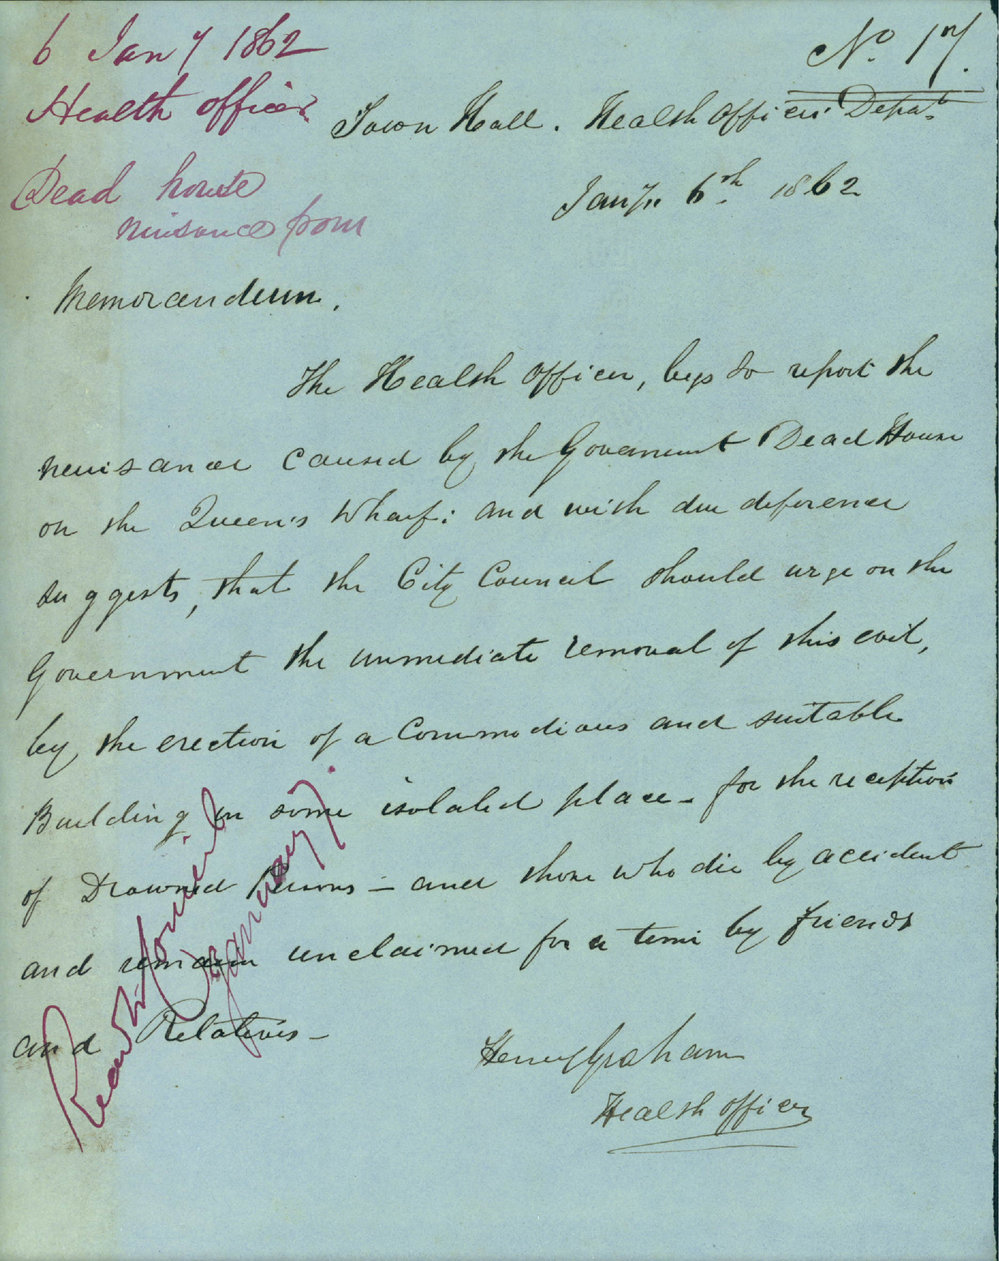 6 Jany 1862
Health officer
Dead house
nuisance from
No. 17.
Town Hall. Health Officers Depat.
Jany. 6th. 1862
Memorandum.
The Health Officer, begs to report the
nuisance caused by the Government Dead House
on the Queen's Wharf: and with due deference
suggests, that the City Council should urge on the
Government the immediate removal of this evil,
by the erection of a Commodious and suitable
Building in some isolated place - for the reception
of Drowned Persons - and those who die by accident
and remain unclaimed for a time by friends
and Relatives -
Henry Graham
Health Officer
Read in Council
January 7.